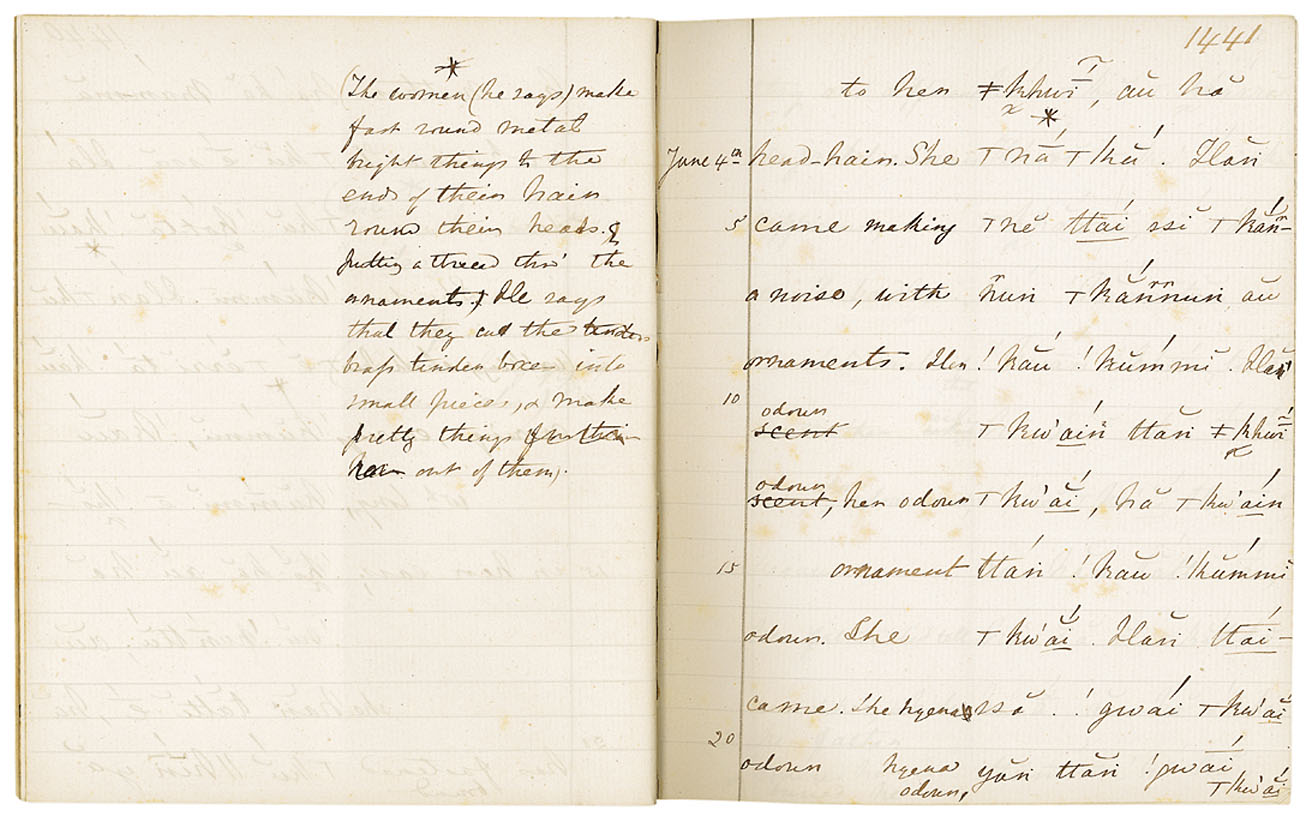 *
(The women (he says) make
fast round metal
bright things to the
ends of their hair
round their heads &
putting a thread thro' the
ornaments.) He says
that they cut the tinder
brass tinder box into
small pieces, & make
pretty things for their
hair out of them).
1441
to her ǂkhwī, aū hă
*
June 4th head-hair. She ⊤nā́ ⊤kū́. Hăn
5 came making ⊤nĕ ttaí ssĭ ⊤kắn-
a noise, with ⊤kắnnun au
ornaments. Han !kăū !kŭ́mmĭ. Hăn
10 odour
scent ⊤kw'aín ttăn ǂkhwī
odour
scent, her odour ⊤kw'aĭ, hă ⊤kw'aín
15 ornament ttăn !kăū !kŭ́mmĭ
odour. She ⊤kw'aĭ. Hăn ttaí-
came. She hyena ssă. !gwaí ⊤kw'aĭ
20 odour hyena yăn ttăn !gwaí
odour, ⊤kw'aĭ